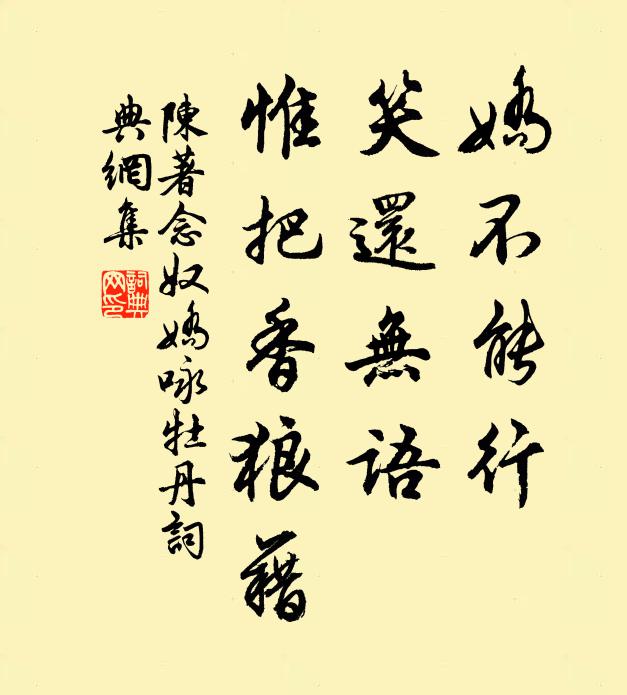 嬌不能行
笑還無語
惟把香狼藉
陳著念奴嬌咏牡丹詞
典網集
詞典網印